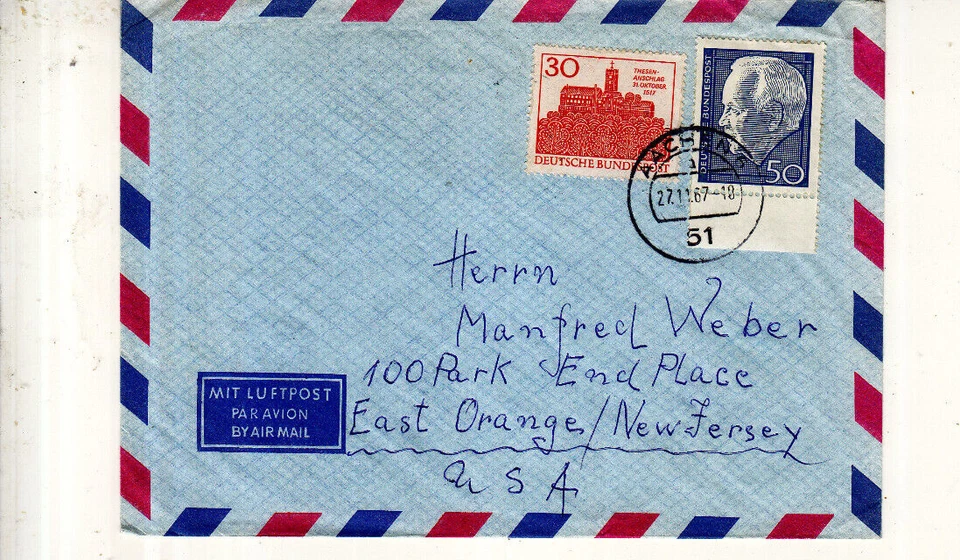 30
THESEN-
ANSCHLAG
31. OKTOBER
1517
DEUTSCHE BUNDESPOST
DEUTSCHE BUNDESPOST
50
AACHEN
1
27.11.67-18
51
Herrn
Manfred Weber
100 Park End Place
East Orange/New Jersey
USA
MIT LUFTPOST
PAR AVION
BY AIR MAIL